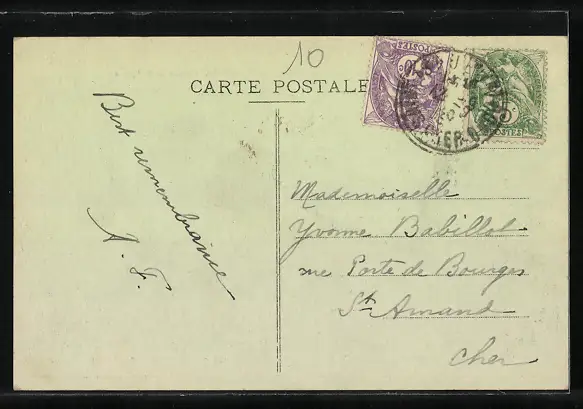 10
CARTE POSTALE
POSTES
Best remembrance
A. F.
Mademoiselle
Yvonne Babillot
rue Porte de Bourges
St Amand
Cher